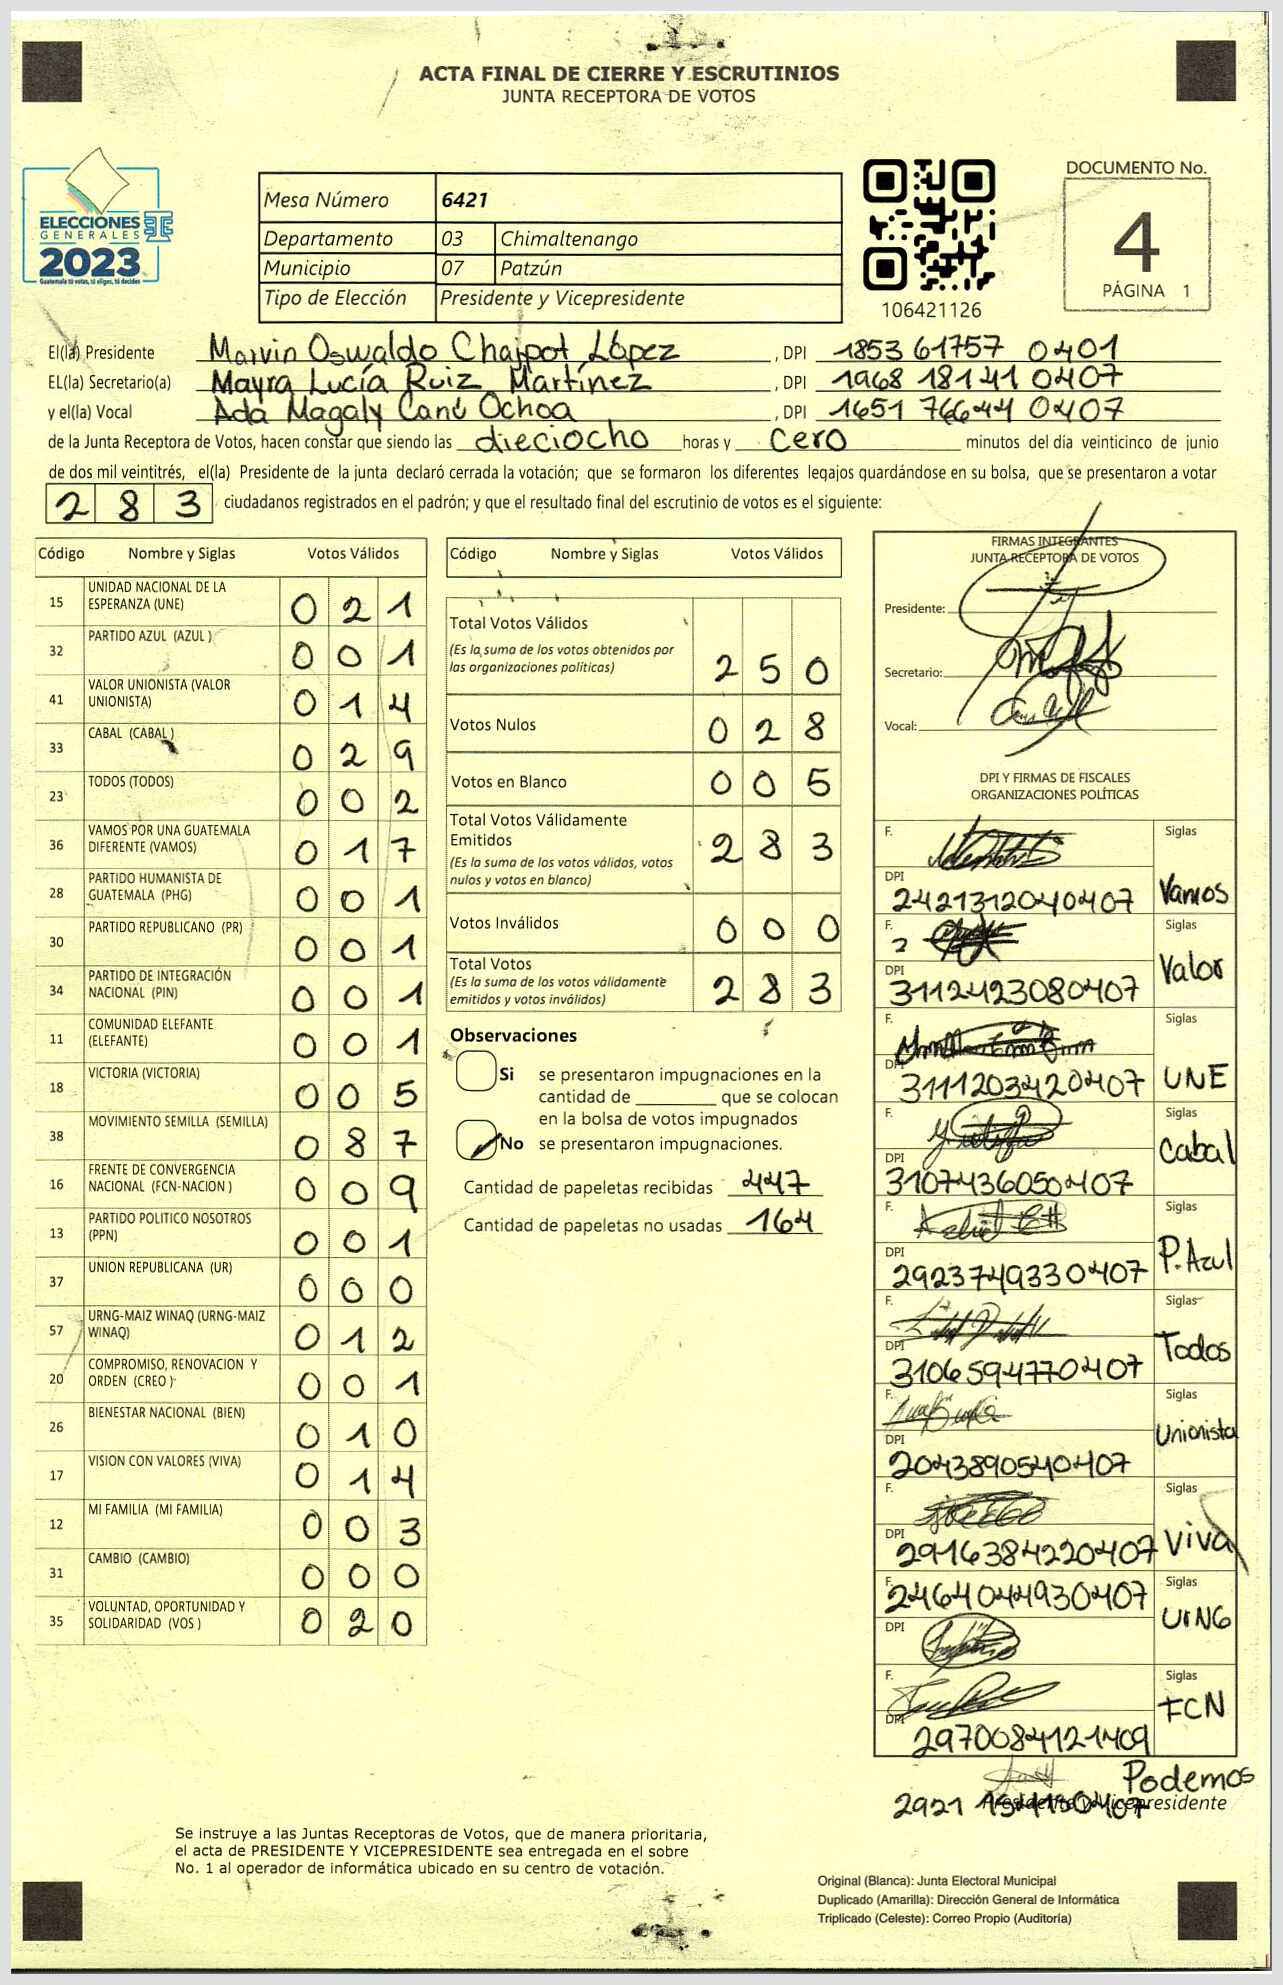 ACTA FINAL DE CIERRE Y ESCRUTINIOS
JUNTA RECEPTORA DE VOTOS
ELECCIONES
GENERALES
2023
Guatemala tú votas, tú eliges, tú decides
Mesa Número 6421
Departamento 03 Chimaltenango
Municipio 07 Patzún
Tipo de Elección Presidente y Vicepresidente
106421126
DOCUMENTO No.
4
PÁGINA 1
El(la) Presidente Marvin Oswaldo Chajpot López , DPI 1853 61757 0401
EL(la) Secretario(a) Mayra Lucía Ruiz Martínez , DPI 1968 18141 0407
y el(la) Vocal Ada Magaly Canú Ochoa , DPI 1651 76644 0407
de la Junta Receptora de Votos, hacen constar que siendo las dieciocho horas y cero minutos del día veinticinco de junio
de dos mil veintitrés, el(la) Presidente de la junta declaró cerrada la votación; que se formaron los diferentes legajos guardándose en su bolsa, que se presentaron a votar
2 8 3 ciudadanos registrados en el padrón; y que el resultado final del escrutinio de votos es el siguiente:
Código Nombre y Siglas Votos Válidos
15 UNIDAD NACIONAL DE LA
ESPERANZA (UNE) 0 2 1
32 PARTIDO AZUL (AZUL ) 0 0 1
41 VALOR UNIONISTA (VALOR
UNIONISTA) 0 1 4
33 CABAL (CABAL ) 0 2 9
23 TODOS (TODOS) 0 0 2
36 VAMOS POR UNA GUATEMALA
DIFERENTE (VAMOS) 0 1 7
28 PARTIDO HUMANISTA DE
GUATEMALA (PHG) 0 0 1
30 PARTIDO REPUBLICANO (PR) 0 0 1
34 PARTIDO DE INTEGRACIÓN
NACIONAL (PIN) 0 0 1
11 COMUNIDAD ELEFANTE
(ELEFANTE) 0 0 1
18 VICTORIA (VICTORIA) 0 0 5
38 MOVIMIENTO SEMILLA (SEMILLA) 0 8 7
16 FRENTE DE CONVERGENCIA
NACIONAL (FCN-NACION ) 0 0 9
13 PARTIDO POLITICO NOSOTROS
(PPN) 0 0 1
37 UNION REPUBLICANA (UR) 0 0 0
57 URNG-MAIZ WINAQ (URNG-MAIZ
WINAQ) 0 1 2
20 COMPROMISO, RENOVACION Y
ORDEN (CREO ) 0 0 1
26 BIENESTAR NACIONAL (BIEN) 0 1 0
17 VISION CON VALORES (VIVA) 0 1 4
12 MI FAMILIA (MI FAMILIA) 0 0 3
31 CAMBIO (CAMBIO) 0 0 0
35 VOLUNTAD, OPORTUNIDAD Y
SOLIDARIDAD (VOS ) 0 2 0
Código Nombre y Siglas Votos Válidos
Total Votos Válidos
(Es la suma de los votos obtenidos por
las organizaciones políticas) 2 5 0
Votos Nulos 0 2 8
Votos en Blanco 0 0 5
Total Votos Válidamente
Emitidos 2 8 3
(Es la suma de los votos válidos, votos
nulos y votos en blanco)
Votos Inválidos 0 0 0
Total Votos
(Es la suma de los votos válidamente
emitidos y votos inválidos) 2 8 3
Observaciones
Si se presentaron impugnaciones en la
cantidad de ________ que se colocan
en la bolsa de votos impugnados
No se presentaron impugnaciones.
Cantidad de papeletas recibidas 447
Cantidad de papeletas no usadas 164
FIRMAS INTEGRANTES
JUNTA RECEPTORA DE VOTOS
Presidente:
Secretario:
Vocal:
DPI Y FIRMAS DE FISCALES
ORGANIZACIONES POLÍTICAS
F. Siglas
DPI
2421312040407 Vamos
F. Siglas
DPI
3112423080407 Valor
F. Siglas
DPI
3111203420407 UNE
F. Siglas
DPI
3107436050407 Cabal
F. Siglas
DPI
2923749330407 P. Azul
F. Siglas
DPI
3106594770407 Todos
F. Siglas
DPI
2043890540407 Unionista
F. Siglas
DPI
2916384220407 Viva
F. Siglas
2464044930407 UrNG
DPI
F. Siglas
DPI
2970084121409 FCN
Podemos
2921 0407
Presidente y Vicepresidente
Se instruye a las Juntas Receptoras de Votos, que de manera prioritaria,
el acta de PRESIDENTE Y VICEPRESIDENTE sea entregada en el sobre
No. 1 al operador de informática ubicado en su centro de votación.
Original (Blanca): Junta Electoral Municipal
Duplicado (Amarilla): Dirección General de Informática
Triplicado (Celeste): Correo Propio (Auditoría)